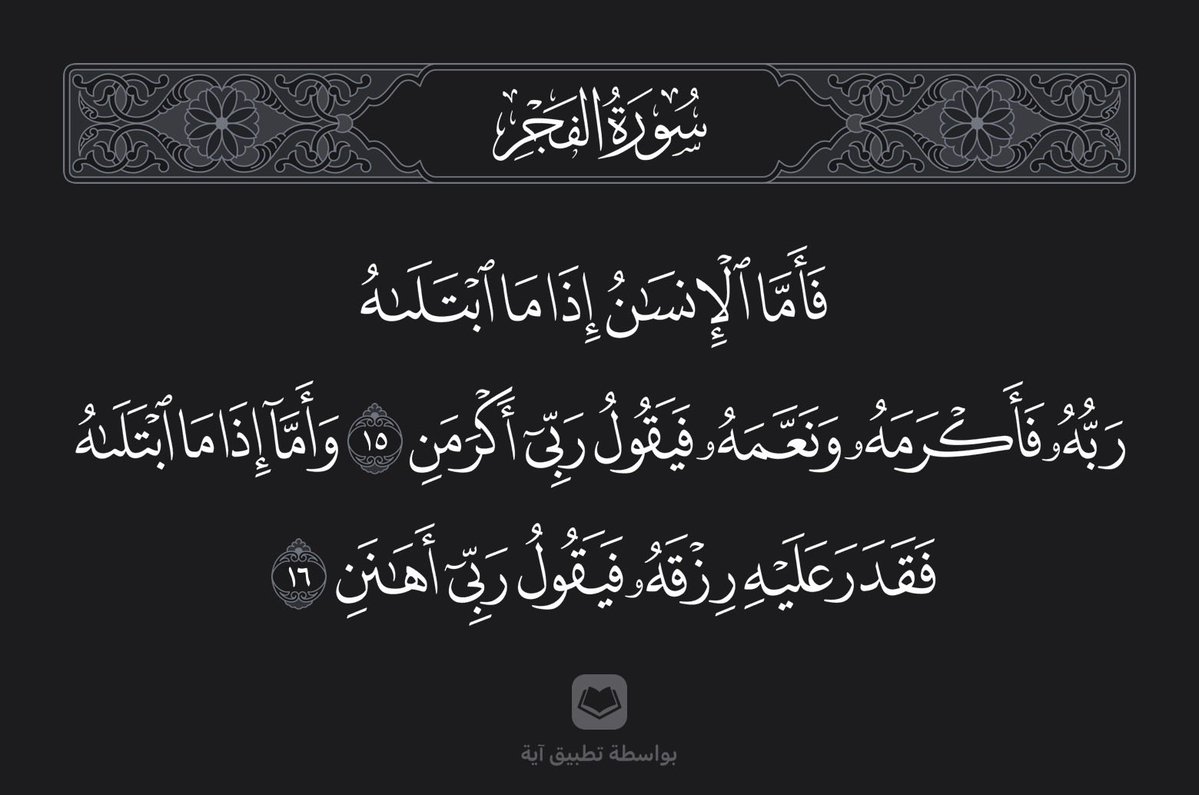 سُورَةُ الفَجْرِ
فَأَمَّا ٱلْإِنسَـٰنُ إِذَا مَا ٱبْتَلَىٰهُ
رَبُّهُۥ فَأَكْرَمَهُۥ وَنَعَّمَهُۥ فَيَقُولُ رَبِّىٓ أَكْرَمَنِ ١٥ وَأَمَّآ إِذَا مَا ٱبْتَلَىٰهُ
فَقَدَرَ عَلَيْهِ رِزْقَهُۥ فَيَقُولُ رَبِّىٓ أَهَـٰنَنِ ١٦
بواسطة تطبيق آية